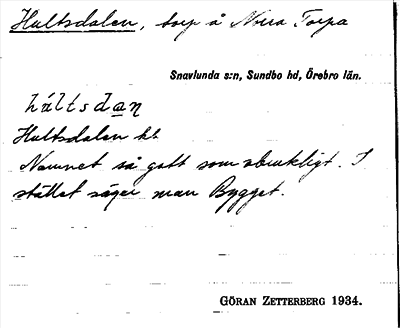 Hultsdalen, torp å Norra Torpa
Snavlunda s:n, Sundbo hd, Örebro län.
húltsdaṉ
Hultsdalen kt.
Namnet så gott som obrukligt. I
stället säger man Bygget.
GÖRAN ZETTERBERG 1934.